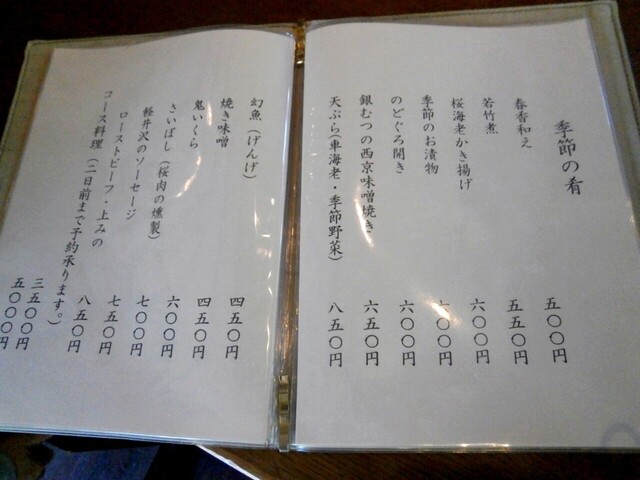 季節の肴
春香和え 五〇〇円
若竹煮 五五〇円
桜海老かき揚げ 六〇〇円
季節のお漬物 〇〇円
のどぐろ開き 六〇〇円
銀むつの西京味噌焼き 六五〇円
天ぷら（車海老・季節野菜） 八五〇円
幻魚（げんげ） 四五〇円
焼き味噌 四五〇円
鬼いくら 六〇〇円
さいぼし（桜肉の燻製） 七〇〇円
軽井沢のソーセージ 七五〇円
ローストビーフ・上みの 八五〇円
コース料理（二日前まで予約承ります。）
三五〇〇円
五〇〇〇円